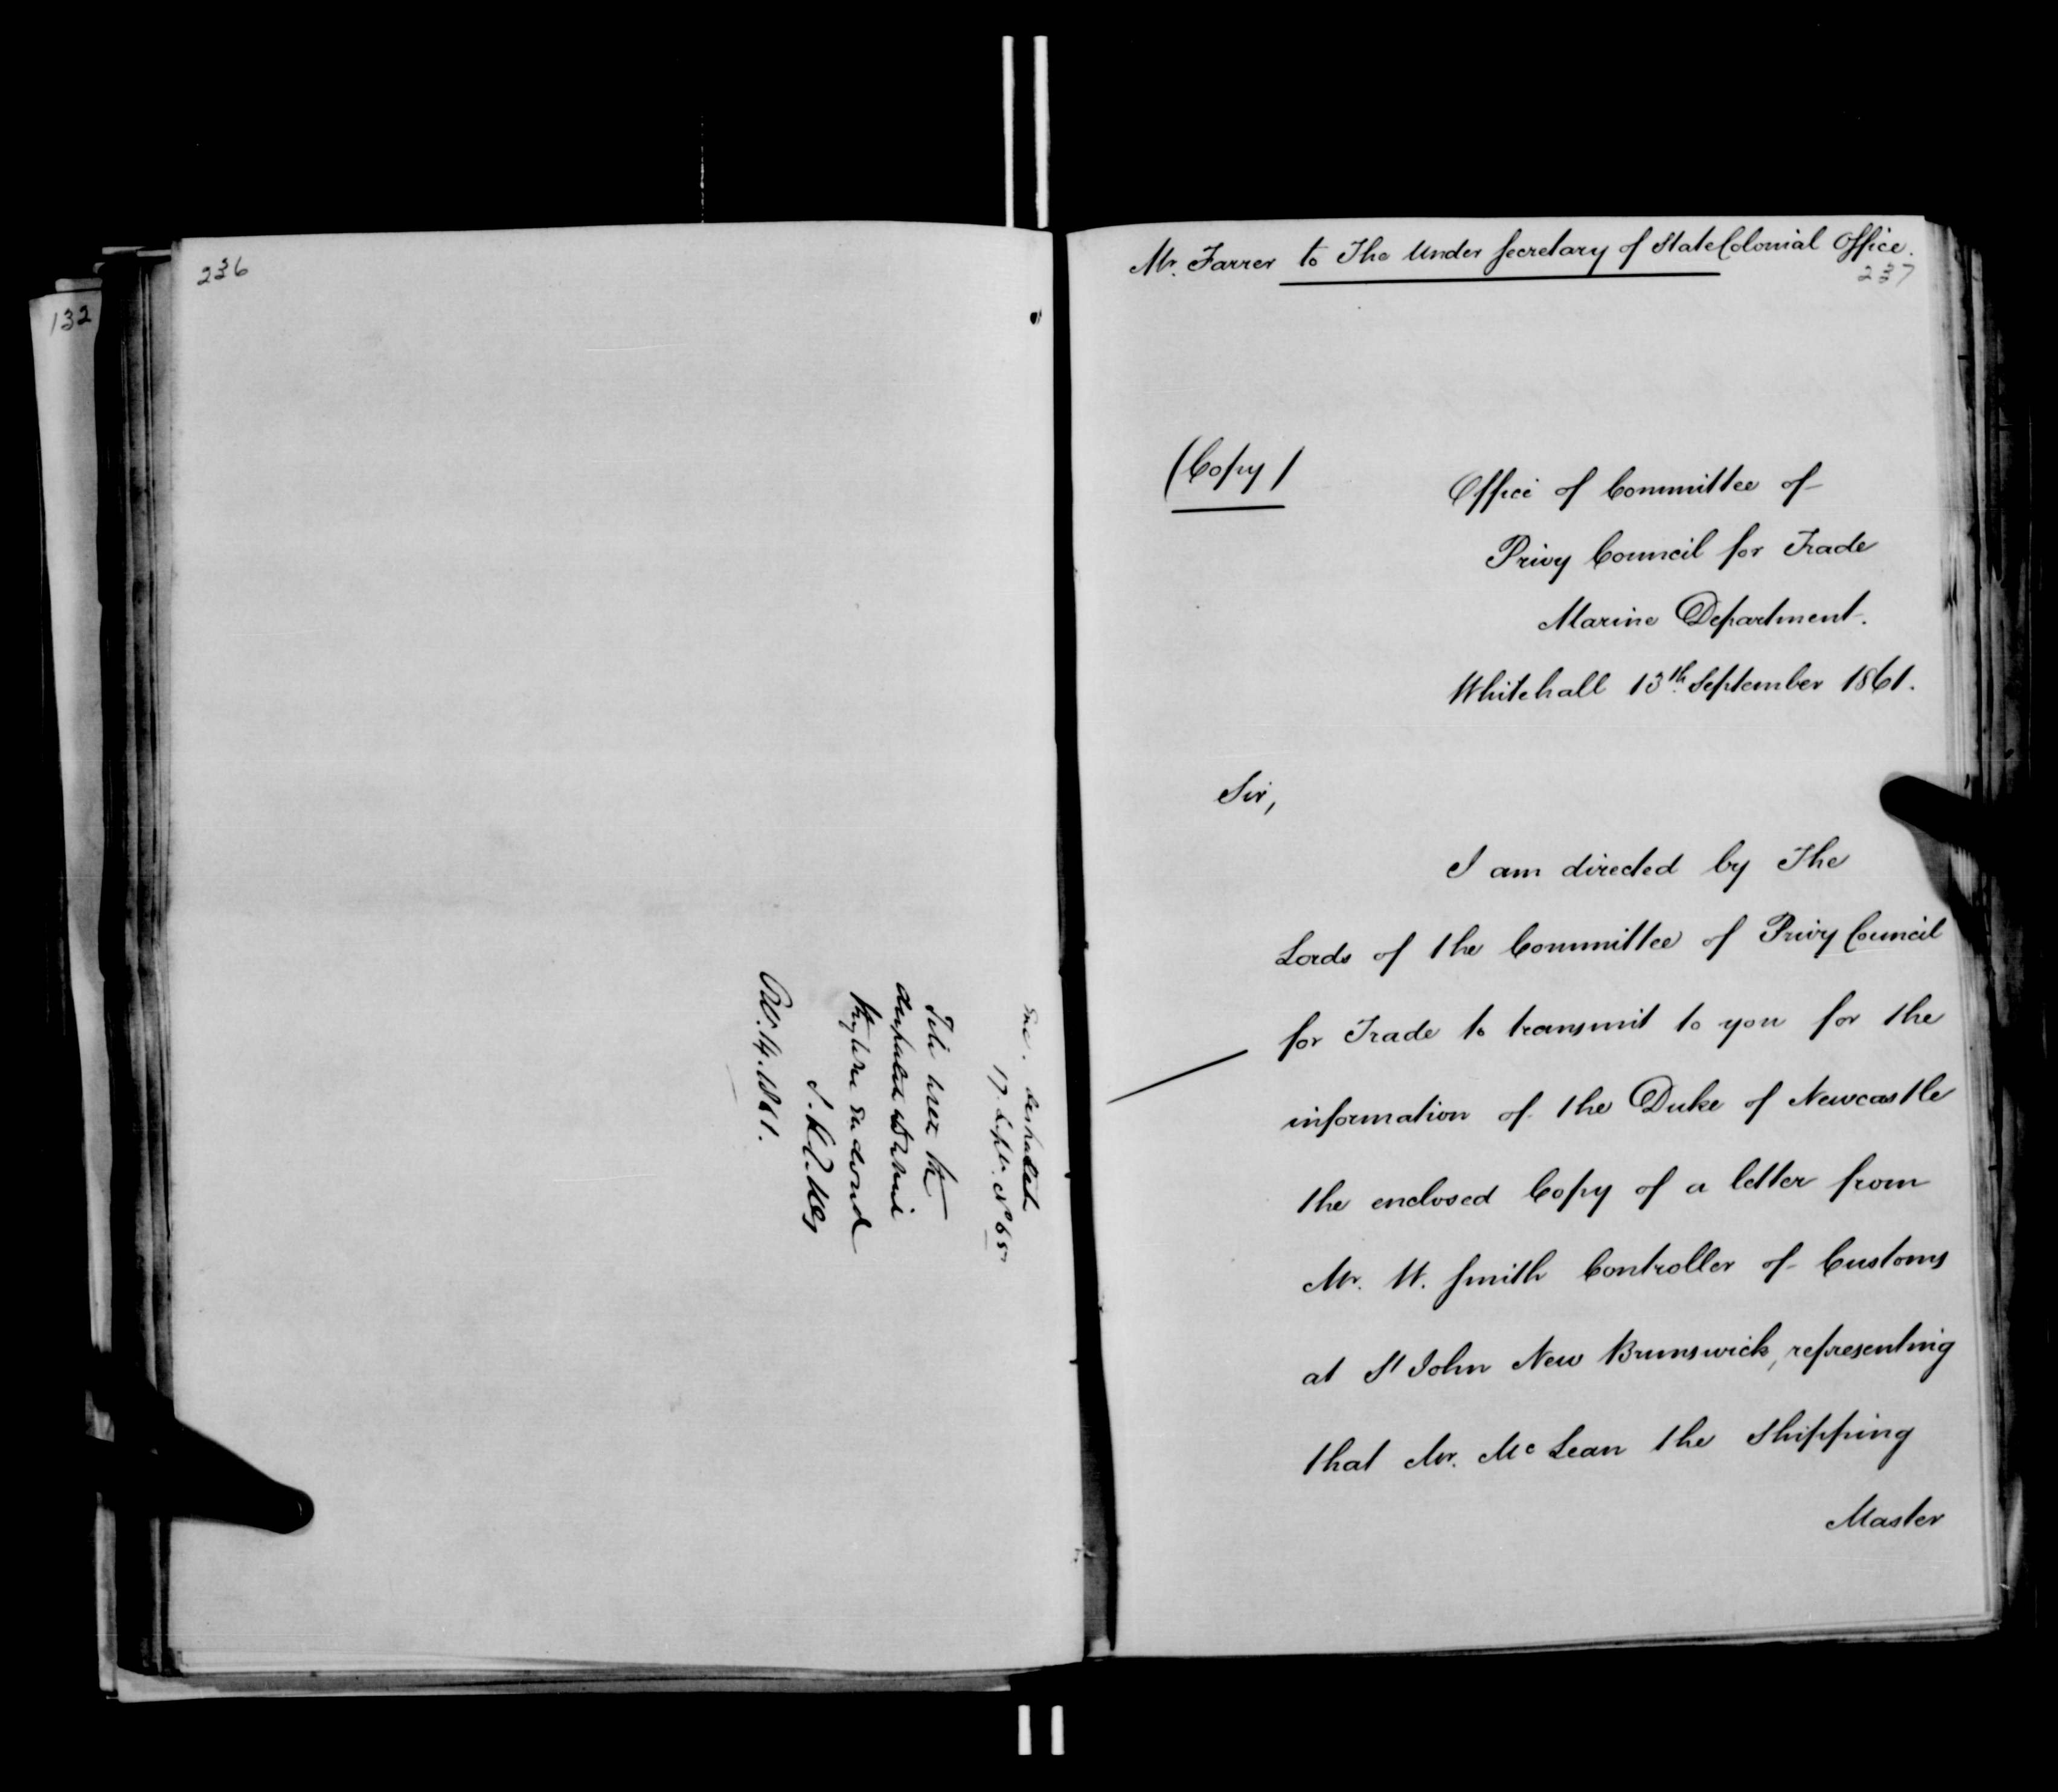 132
236
Enc. Despatch
17. Sept. No 65
Oct. 14. 1861.
Mr. Farrer to The Under Secretary of State Colonial Office.
237
(Copy)
Office of Committee of
Privy Council for Trade
Marine Department.
Whitehall 13th September 1861.
Sir,
I am directed by The
Lords of the Committee of Privy Council
for Trade to transmit to you for the
information of the Duke of Newcastle
the enclosed Copy of a letter from
Mr. W. Smith Controller of Customs
at St John New Brunswick, representing
that Mr. McLean the Shipping
Master